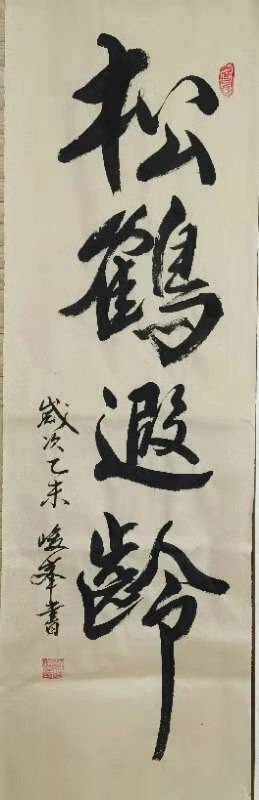 松鶴遐齡
歲次乙未 峻峯書